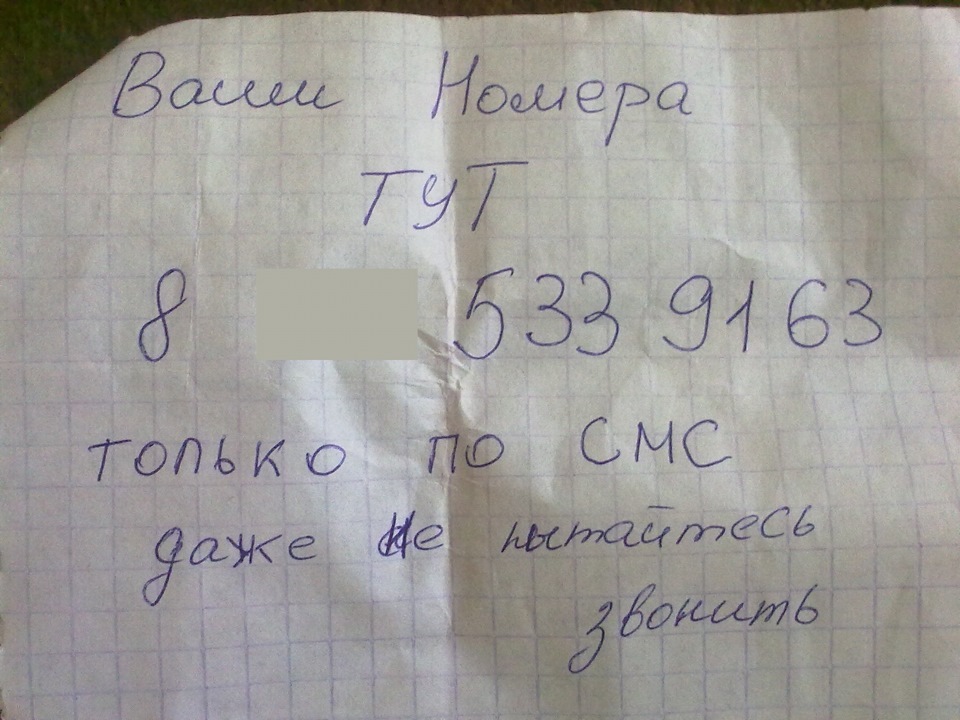 Ваши Номера
ТУТ
8 533 91 63
только по СМС
даже не пытайтесь
звонить